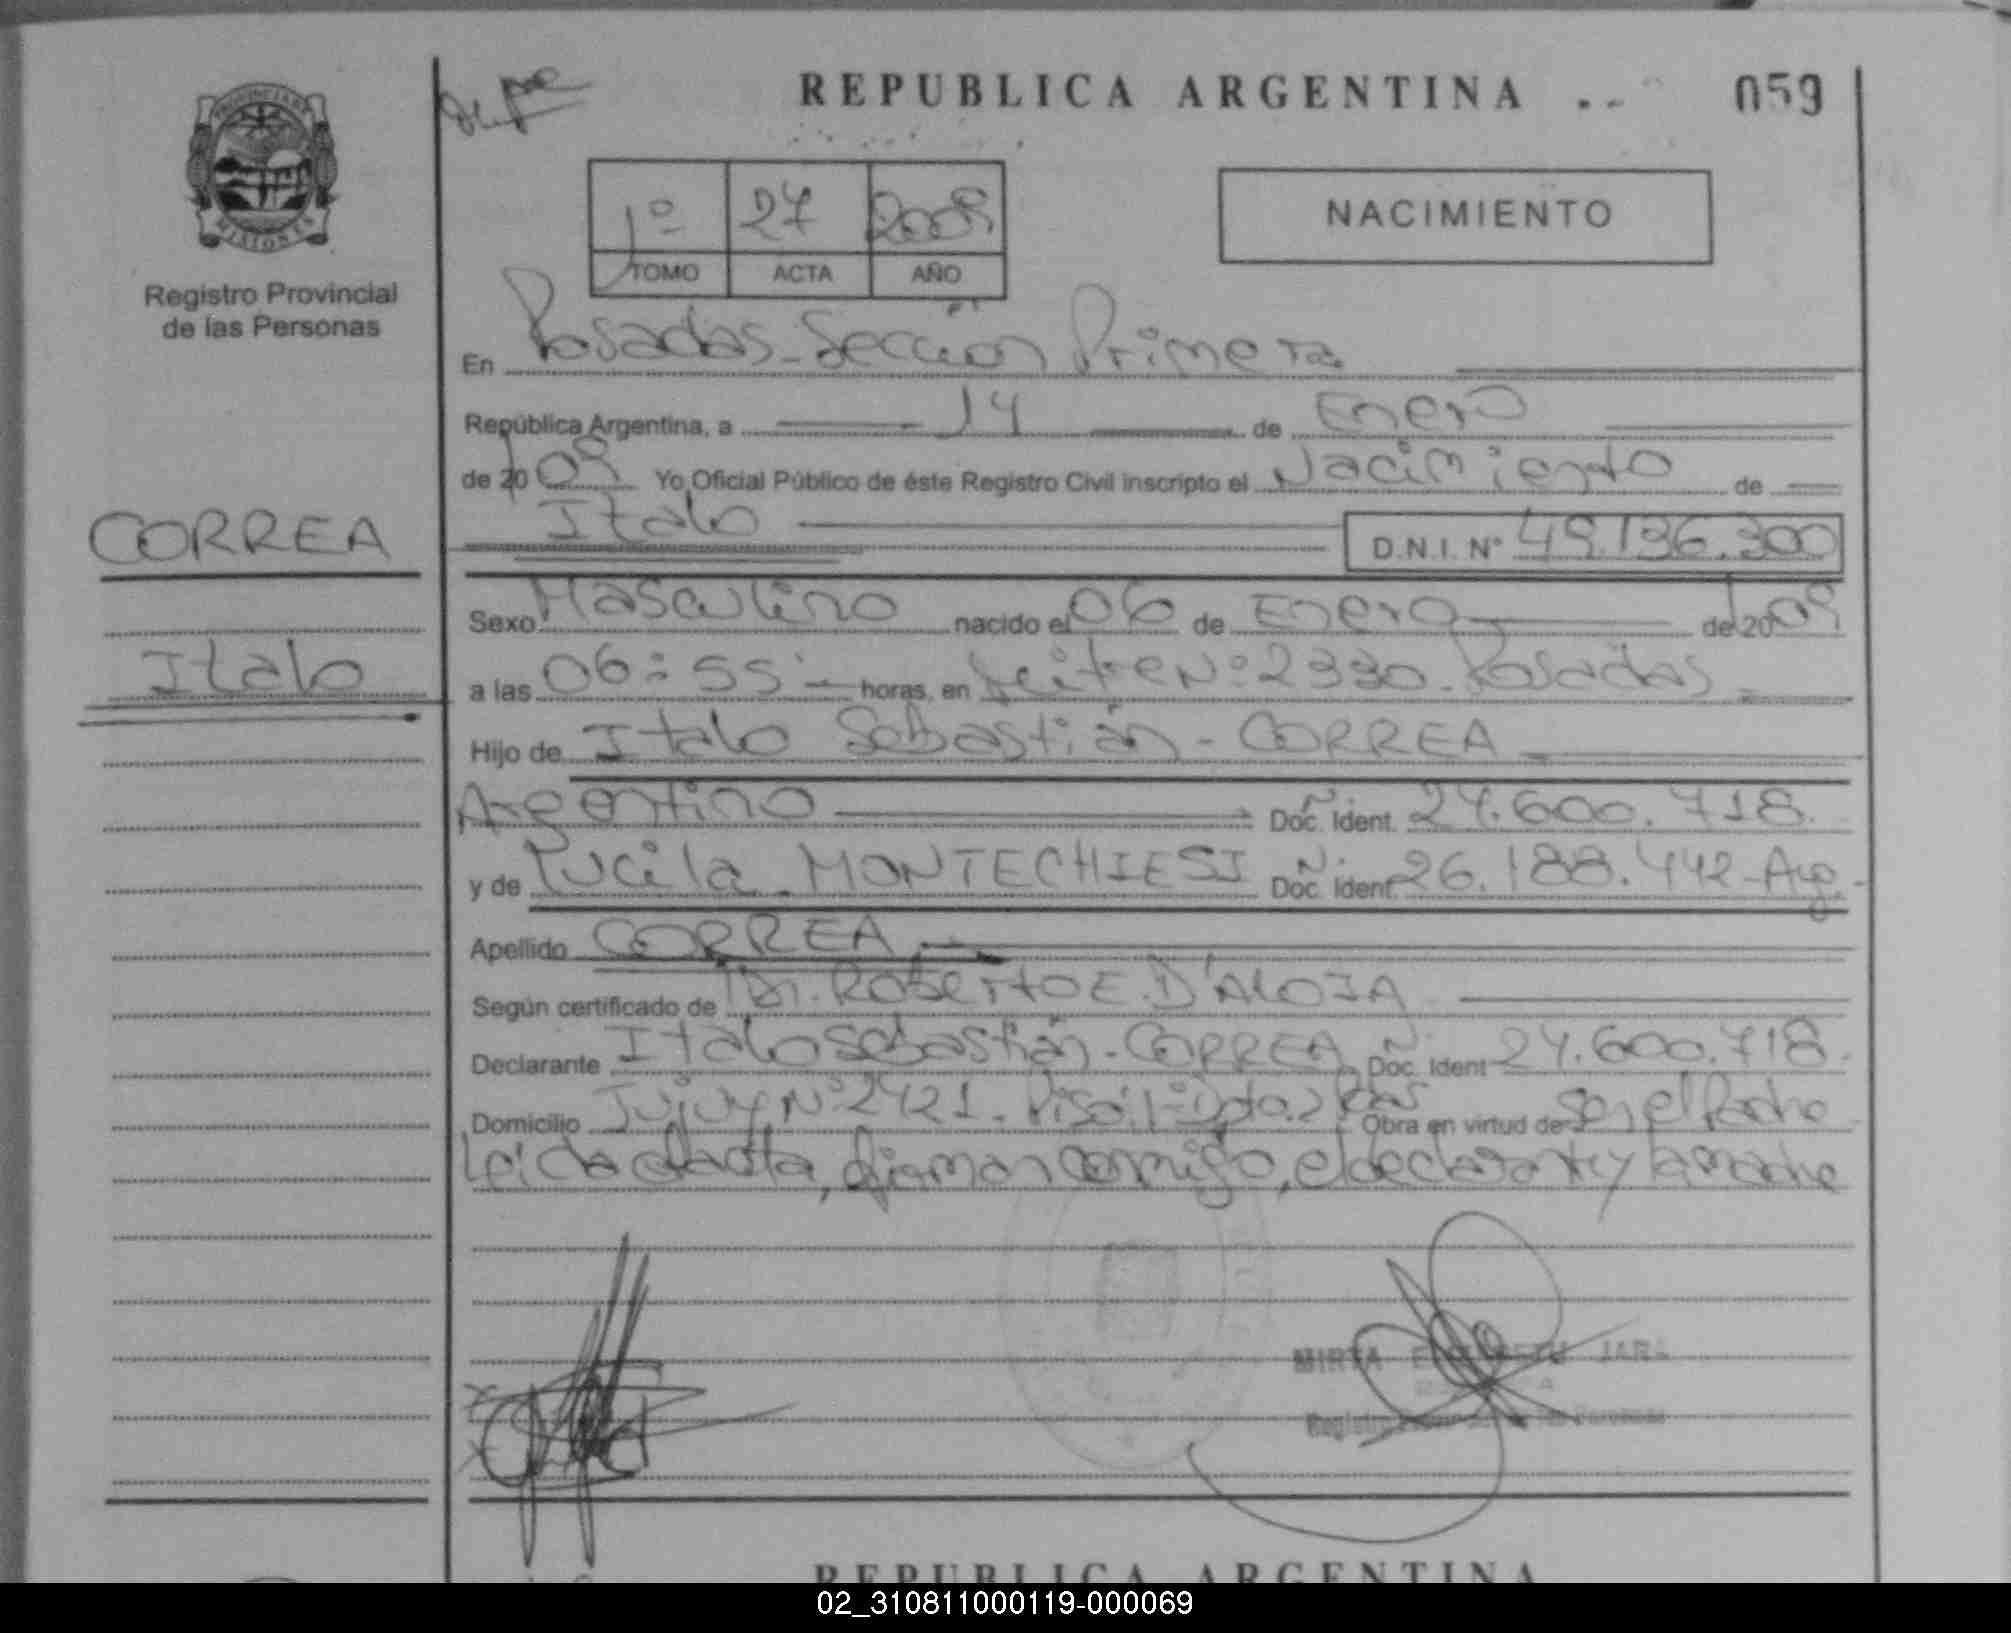 REPUBLICA ARGENTINA
059
PROVINCIA DE
MISIONES
Registro Provincial
de las Personas
1º 27 2009
TOMO ACTA AÑO
NACIMIENTO
En Posadas - Sección Primera
República Argentina, a 14 de Enero
de 2009 Yo Oficial Público de éste Registro Civil inscripto el Nacimiento de
Italo D.N.I. Nº 49.136.300
CORREA
Italo
Sexo Masculino nacido el 06 de Enero de 2009
a las 06:55 horas, en Nº 2330 - Posadas
Hijo de Italo Sebastián - CORREA
Argentino Doc. Ident. 24.600.718
y de Lucila MONTECHIESI Doc. Ident. 26.188.442 - Arg.
Apellido CORREA
Según certificado de Dr. Roberto E. D'ALOIA
Declarante Italo Sebastián - CORREA Doc. Ident 24.600.718
Domicilio Jujuy Nº 2421 - Piso: 1º Dpto. 2 Pdas Obra en virtud de Ser el Padre
Leída el acta, firman conmigo, el declarante y la madre
MIRTA ELIZABETH JARA
Registro Provincial de las Personas
REPUBLICA ARGENTINA
02_310811000119-000069